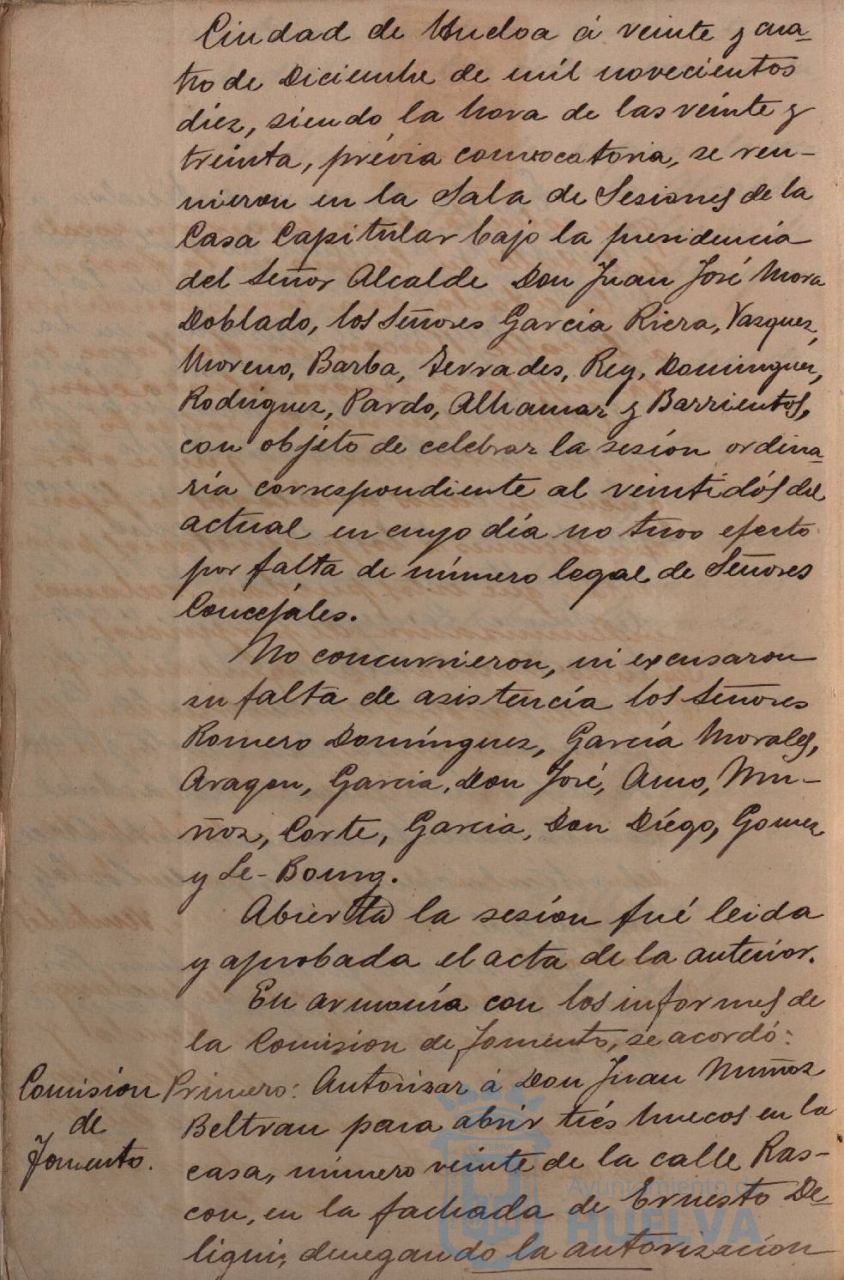 Ciudad de Huelva á veinte y cua-
tro de Diciembre de mil novecientos
diez, siendo la hora de las veinte y
treinta, prévia convocatoria, se reu-
nieron en la Sala de Sesiones de la
Casa Capitular bajo la presidencia
del Señor Alcalde Don Juan José Mora
Doblado, los Señores García Riera, Vazquez,
Moreno, Barba, Terrades, Rey, Dominguez,
Rodriguez, Pardo, Alhamar y Barrientos,
con objéto de celebrar la sesión ordina-
ría correspondiente al veintidós del
actual en cuyo día no tuvo efecto
por falta de número legal de Señores
Concejáles.
No concurrieron, ni excusaron
su falta de asistencía los Señores
Romero Domínguez, García Morales,
Aragon, Garcia, Don José, Amo, Mu-
ñoz, Corte, Garcia, Don Diégo, Gomez
y Le-Bourg.
Abierta la sesíon fué leida
y aprobada el acta de la anterior.
En armonía con los informes de
la Comision de Fomento, se acordó:
Comision
de
Fomento.
Primero: Autorizar á Don Juan Muñoz
Beltran para abrir trés huecos en la
casa, número veinte de la calle Ras-
con, en la fachada de Ernesto De-
ligni; denegando la autorizacion
Ayuntamiento de
HUELVA